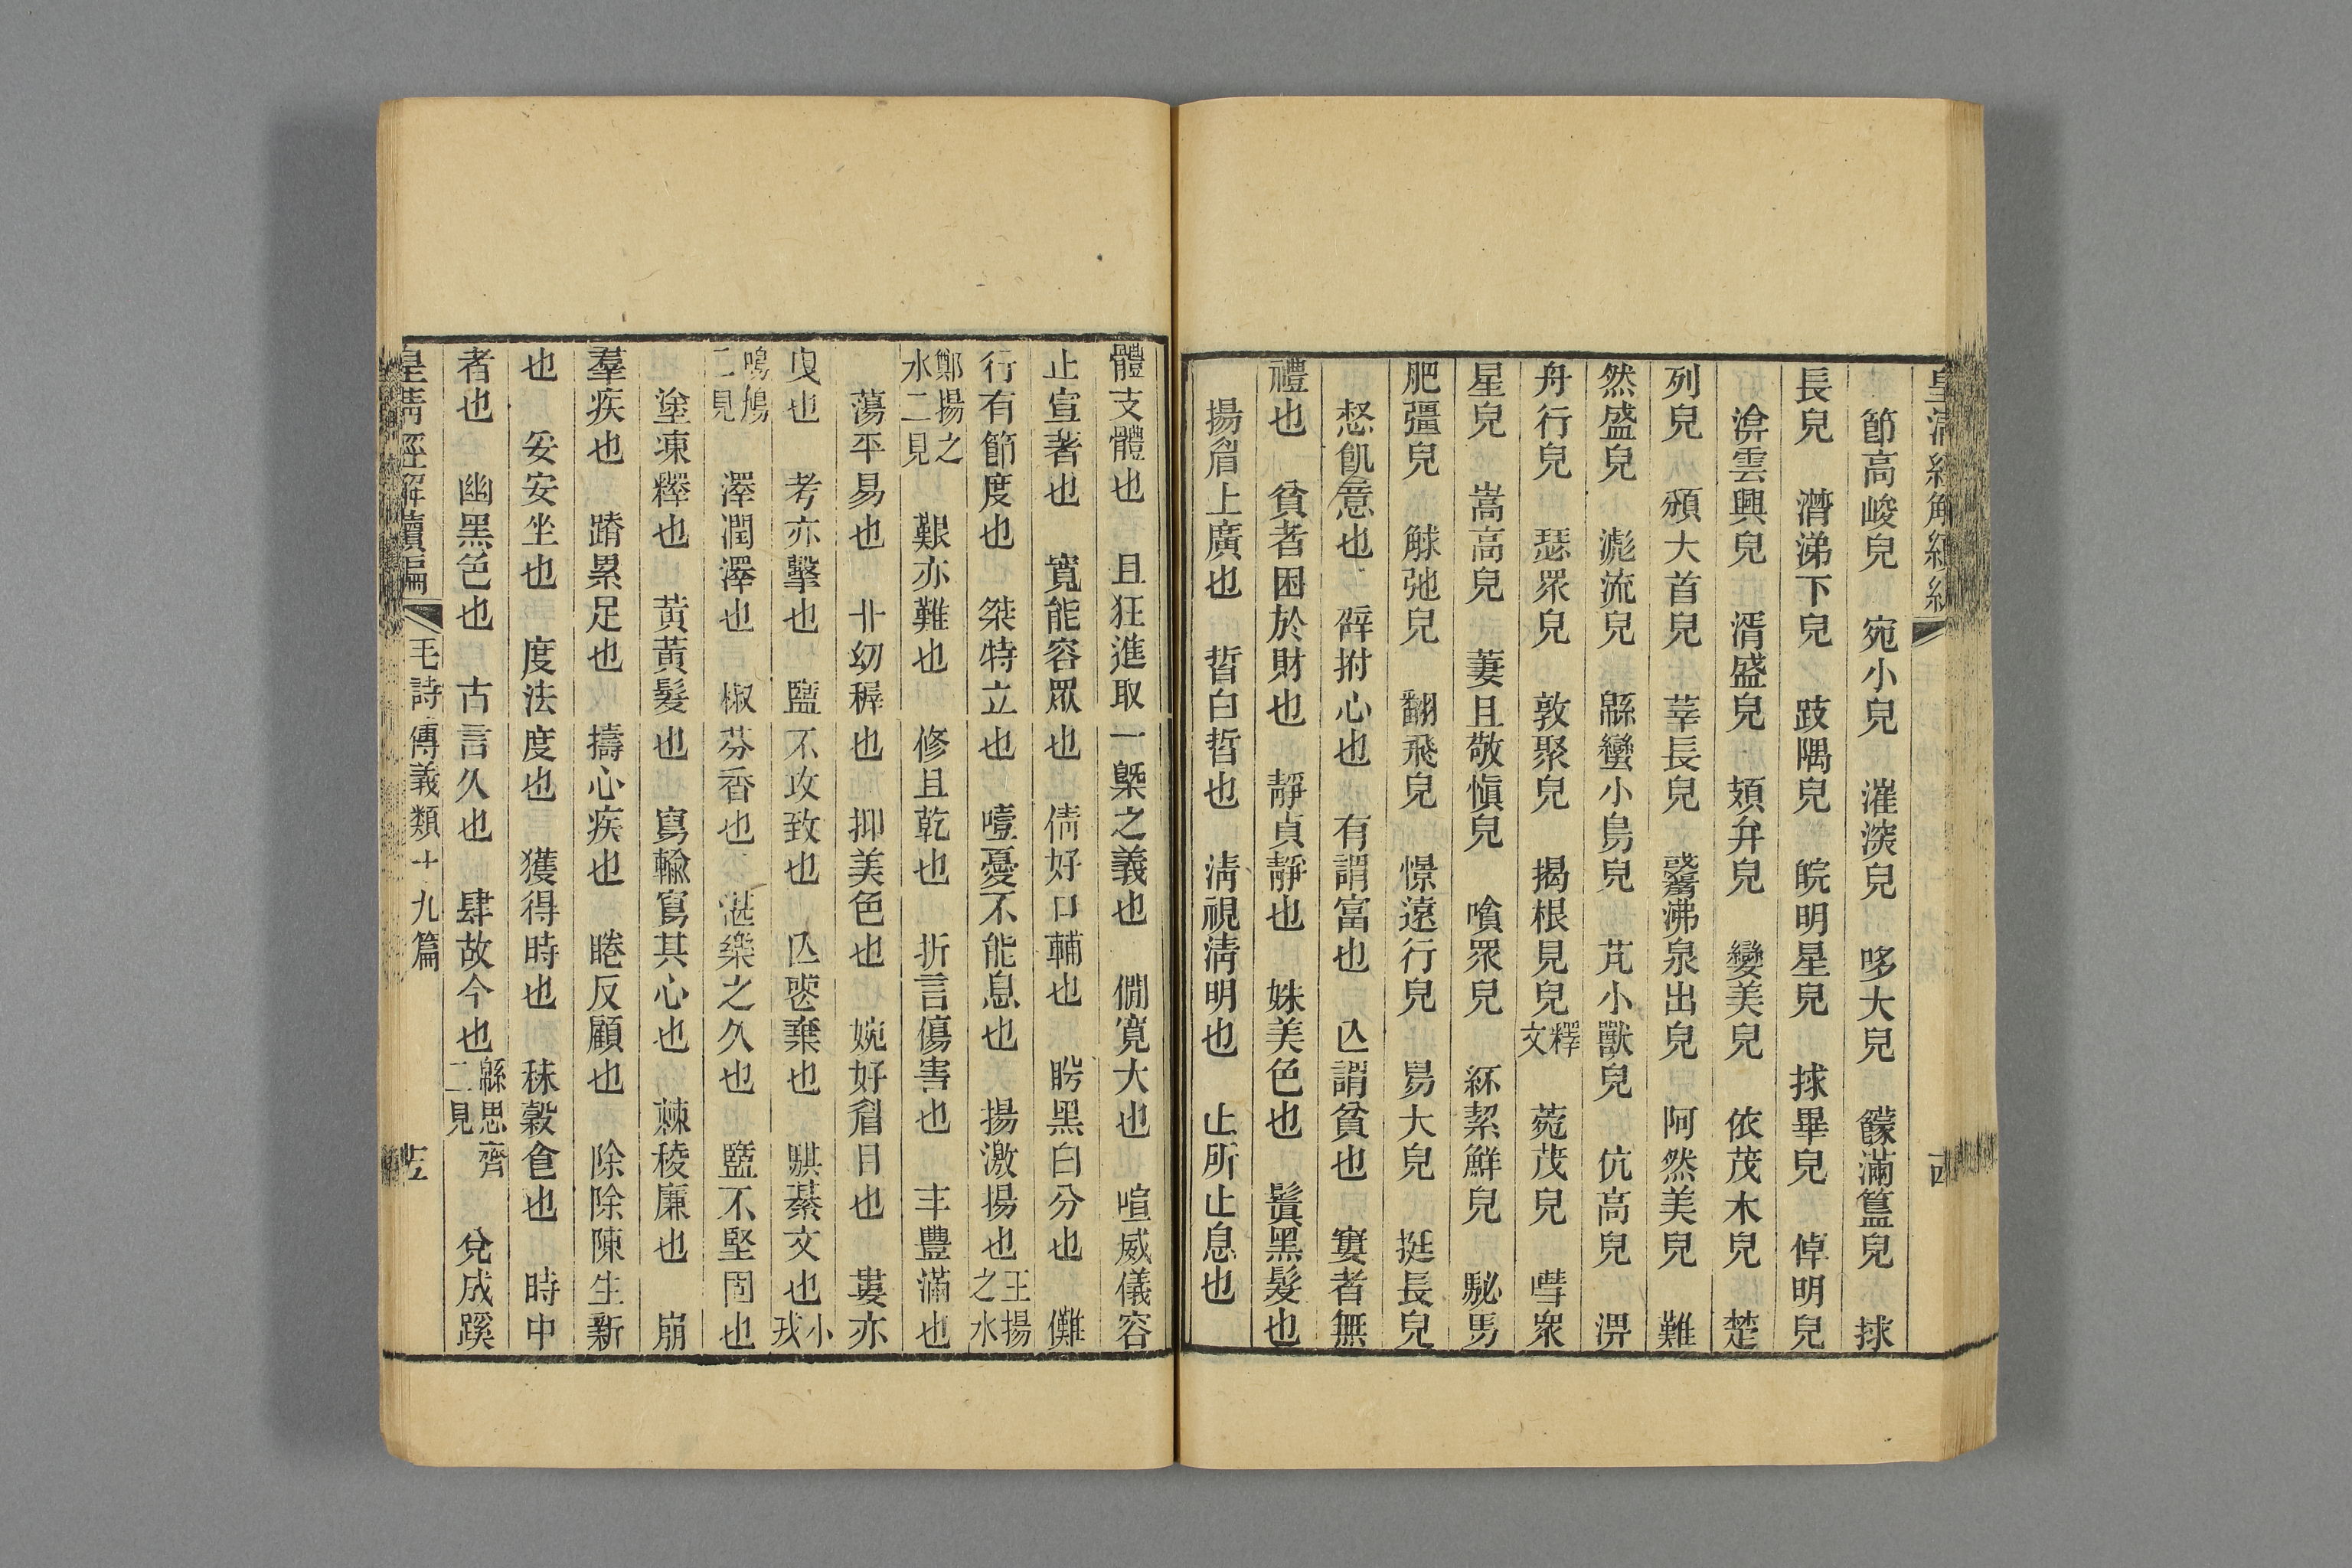 節高峻皃　宛小皃　漼深皃　哆大皃　饛滿簋皃　捄
長皃　濳涕下皃　跂隅皃　睆明星皃　捄畢皃　倬明皃
渰雲興皃　湑盛皃　頍弁皃　孌美皃　依茂木皃　楚
列皃　頒大首皃　莘長皃　觱沸泉出皃　阿然美皃　難
然盛皃　滮流皃　緜蠻小鳥皃　芃小獸皃　伉高皃　淠
舟行皃　瑟眾皃　敦聚皃　揭根見皃釋文　菀茂皃　嘒眾
星皃　嵩高皃　萋且敬慎皃　噲眾皃　紑絜鮮皃　駜馬
肥彊皃　觩弛皃　翩飛皃　憬遠行皃　舄大皃　挺長皃
惄飢意也　擗拊心也　有謂富也　亾謂貧也　窶者無
禮也　貧者困於財也　靜貞靜也　姝美色也　鬒黑髮也
揚眉上廣也　晳白晳也　淸視淸明也　止所止息也
體支體也　且狂進取一槩之義也　僩寬大也　喧威儀容
止宣著也　寬能容眾也　倩好口輔也　盼黑白分也　儺
行有節度也　桀特立也　噎憂不能息也　揚激揚也王揚之水
鄭揚之水二見　艱亦難也　修且乾也　折言傷害也　丰豐滿也
蕩平易也　丱幼穉也　抑美色也　婉好眉目也　婁亦
曳也　考亦擊也　盬不攻致也　亾哀棄也　騏綦文也小戎
鳴鳩二見　澤潤澤也　椒芬香也　湛樂之久也　盬不堅固也
塗凍釋也　黃黃髮也　寫輸寫其心也　棘稜廉也　崩
羣疾也　蹐累足也　擣心疾也　睠反顧也　除除陳生新
也　妥安坐也　度法度也　獲得時也　秣穀食也　時中
者也　幽黑色也　古言久也　肆故今也緜思齊二見　兌成蹊
皇淸經解續編　毛詩傳義類十九篇